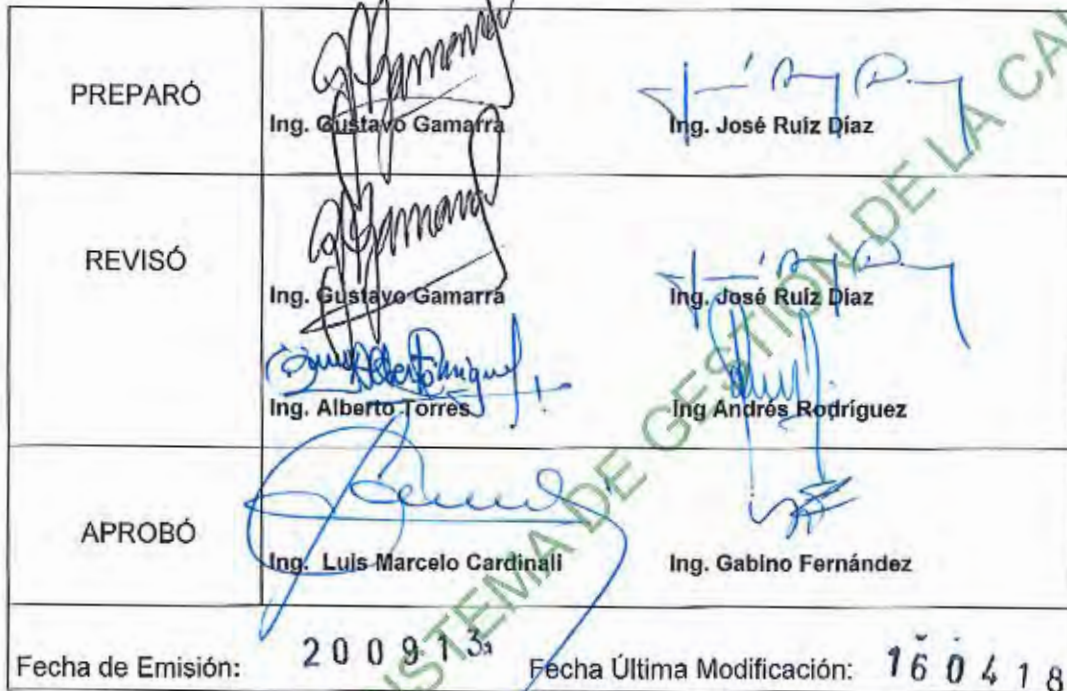 PREPARÓ
Ing. Gustavo Gamarra
Ing. José Ruíz Díaz
REVISÓ
Ing. Gustavo Gamarra
Ing. José Ruíz Díaz
Ing. Alberto Torres
Ing Andrés Rodríguez
APROBÓ
Ing. Luis Marcelo Cardinali
Ing. Gabino Fernández
Fecha de Emisión: 200913 Fecha Última Modificación: 160418
SISTEMA DE GESTION DE LA